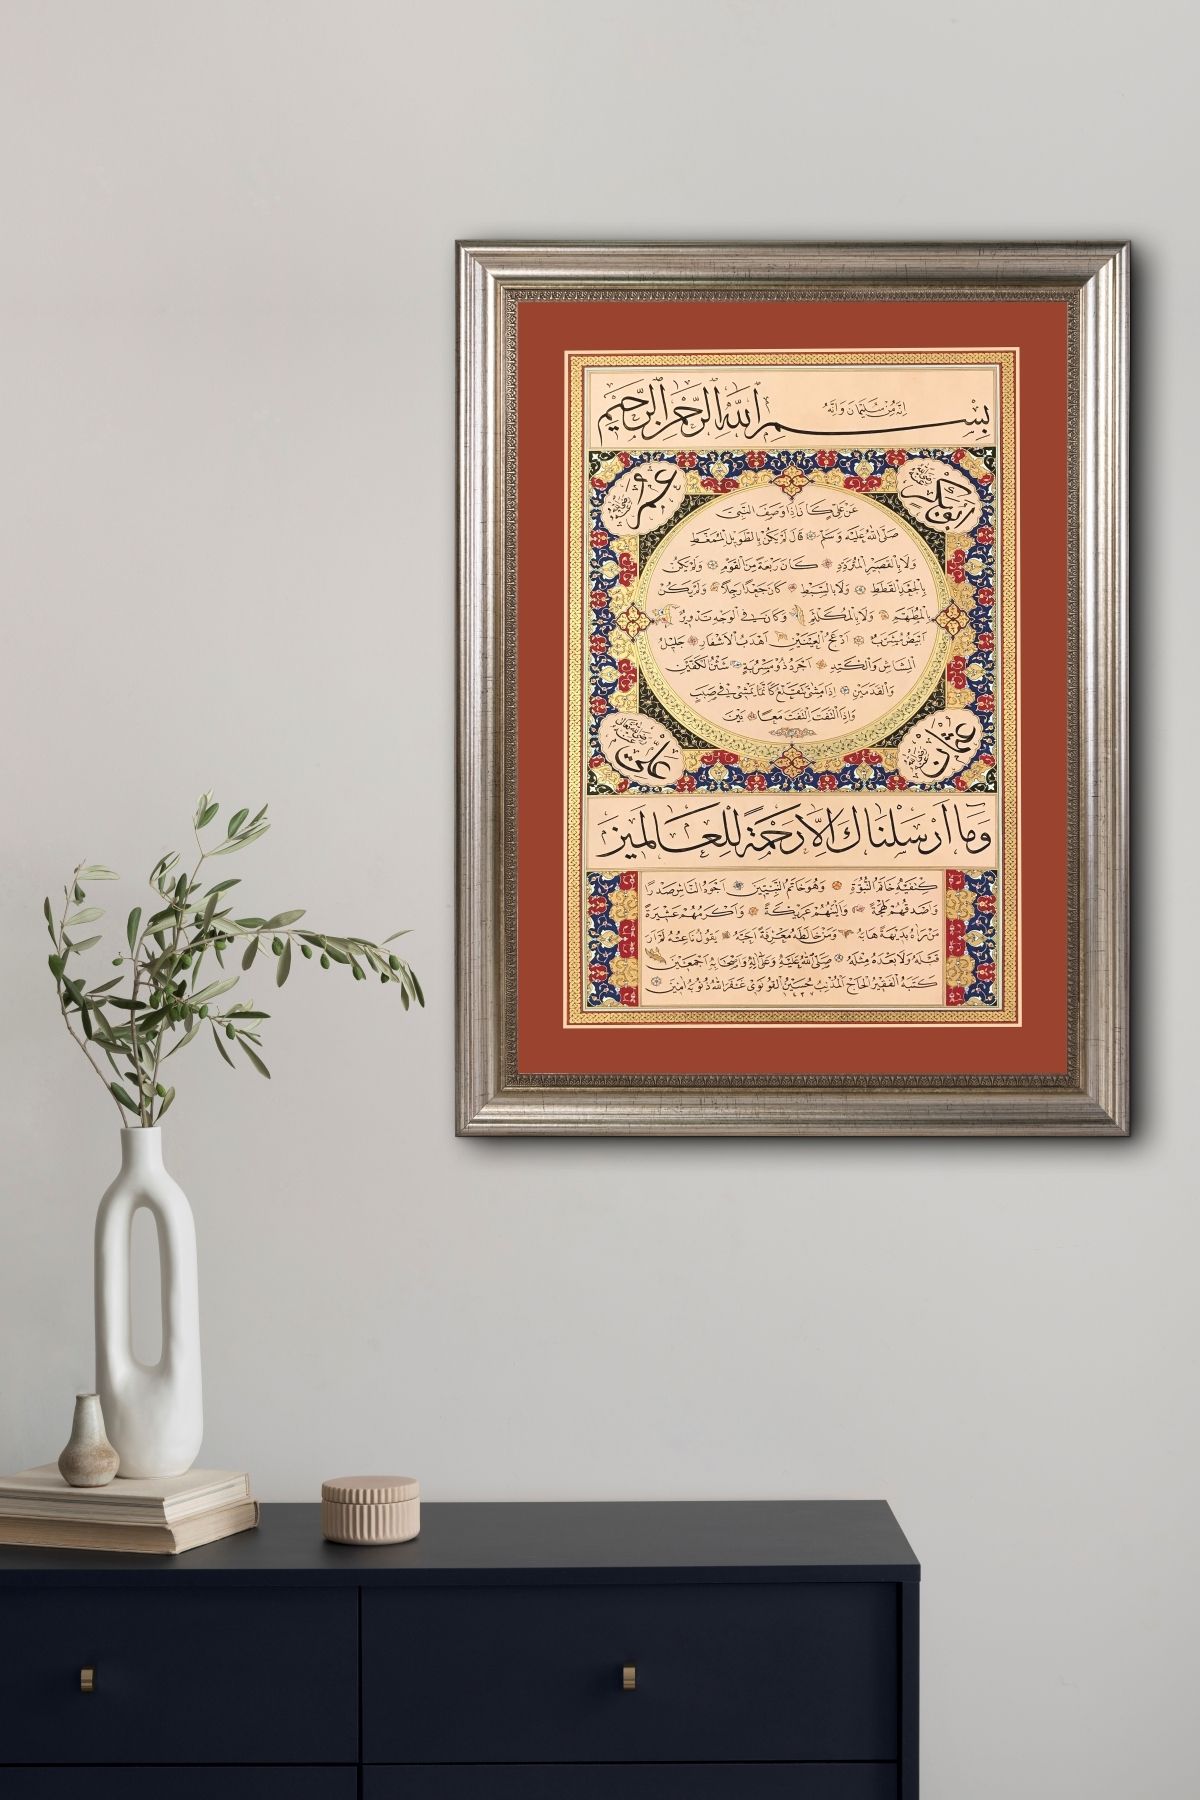 إنه من سليمان وإنه
بسم الله الرحمن الرحيم
أبو بكر رضي الله عنه
عمر رضي الله عنه
عن علي كان إذا وصف النبي
صلى الله عليه وسلم قال لم يكن بالطويل الممغط
ولا بالقصير المتردد كان ربعة من القوم ولم يكن
بالجعد القطط ولا بالسبط كان جعدا رجلا ولم يكن
بالمطهم ولا بالمكلثم وكان في الوجه تدوير
أبيض مشرب أدعج العينين أهدب الأشفار جليل
المشاش والكتد أجرد ذو مسربة شثن الكفين
والقدمين إذا مشى تقلع كأنما يمشي في صبب
وإذا التفت التفت معا بين
عثمان رضي الله
علي رضي الله تعالى
وما أرسلناك إلا رحمة للعالمين
كتفيه خاتم النبوة وهو خاتم النبيين أجود الناس صدرا
وأصدقهم لهجة وألينهم عريكة وأكرمهم عشيرة
من رآه بديهة هابه ومن خالطه معرفة أحبه يقول ناعته لم أر
قبله ولا بعده مثله صلى الله عليه وعلى آله وأصحابه أجمعين
كتبه الفقير الحاج المذنب حسين القونوي غفر الله ذنوبه آمين